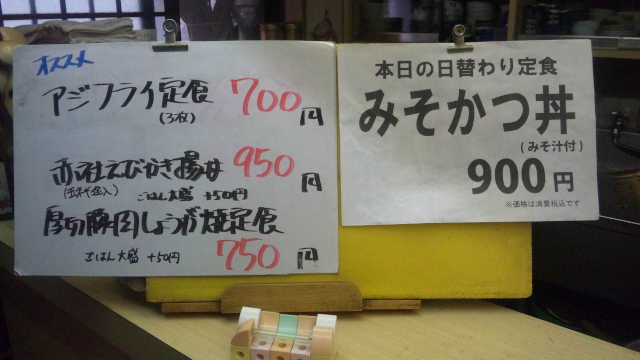 オススメ
アジフライ定食 700円
(3枚)
えびかき揚丼 950円
ごはん大盛 +50円
厚切豚肉しょうが焼定食
ごはん大盛 +50円 750円
本日の日替わり定食
みそかつ丼
(みそ汁付)
900円
※価格は消費税込です